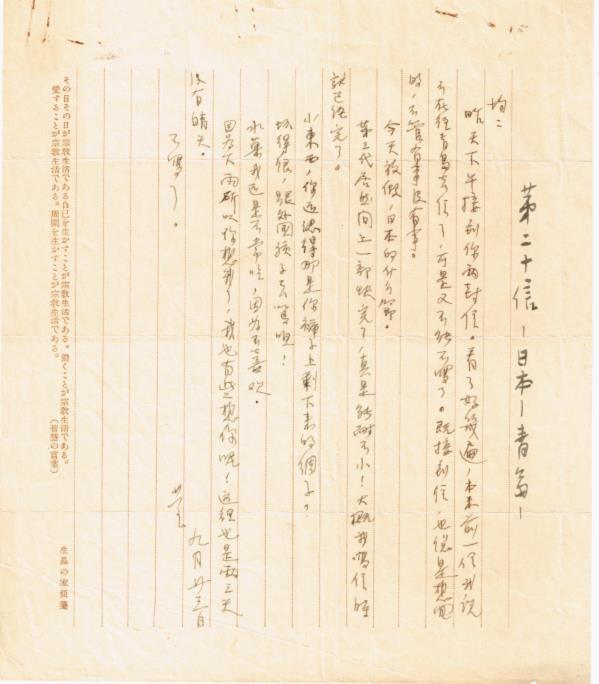 第二十信 —日本—青島—
均：
昨天下午接到你兩封信。看了好幾遍，本来前一信我说
不在往青島去信了，可是又不能不寫了。既接到信，也總是想回
的，不管有事没有事。
今天放假，日本的什么節。
第三代居然间上一部快完了，真是能耐不小！大概我寫信时
就已经完了。
小東西，你还認得那是你褲子上剩下来的绸子？
坏得很，跟外國孩子去罵咀！
水菓我还是不常吃，因为不喜欢。
因为下雨所以你想我了，我也有些想你呢！这裡也是兩三天
没有晴天。
不寫了。
莹
九月廿三日
その日その日が宗教生活である自己を生かすことが宗教生活である。働くことが宗教生活である。
愛することが宗教生活である。周囲を生かすことが宗教生活である。
（智慧の言葉）
生長の家便箋